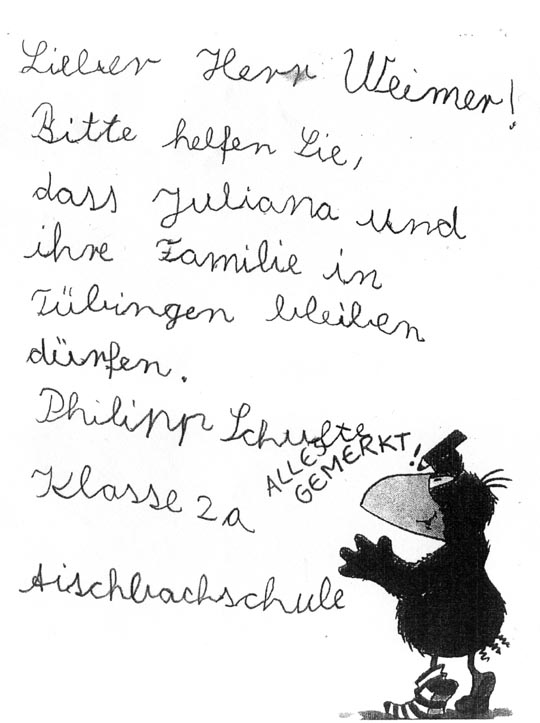 Lieber Herr Weimer!
Bitte helfen Sie,
dass Juliana und
ihre Familie in
Tübingen bleiben
dürfen.
Philipp Schulte
Klasse 2a
Aischbachschule
ALLES
GEMERKT!